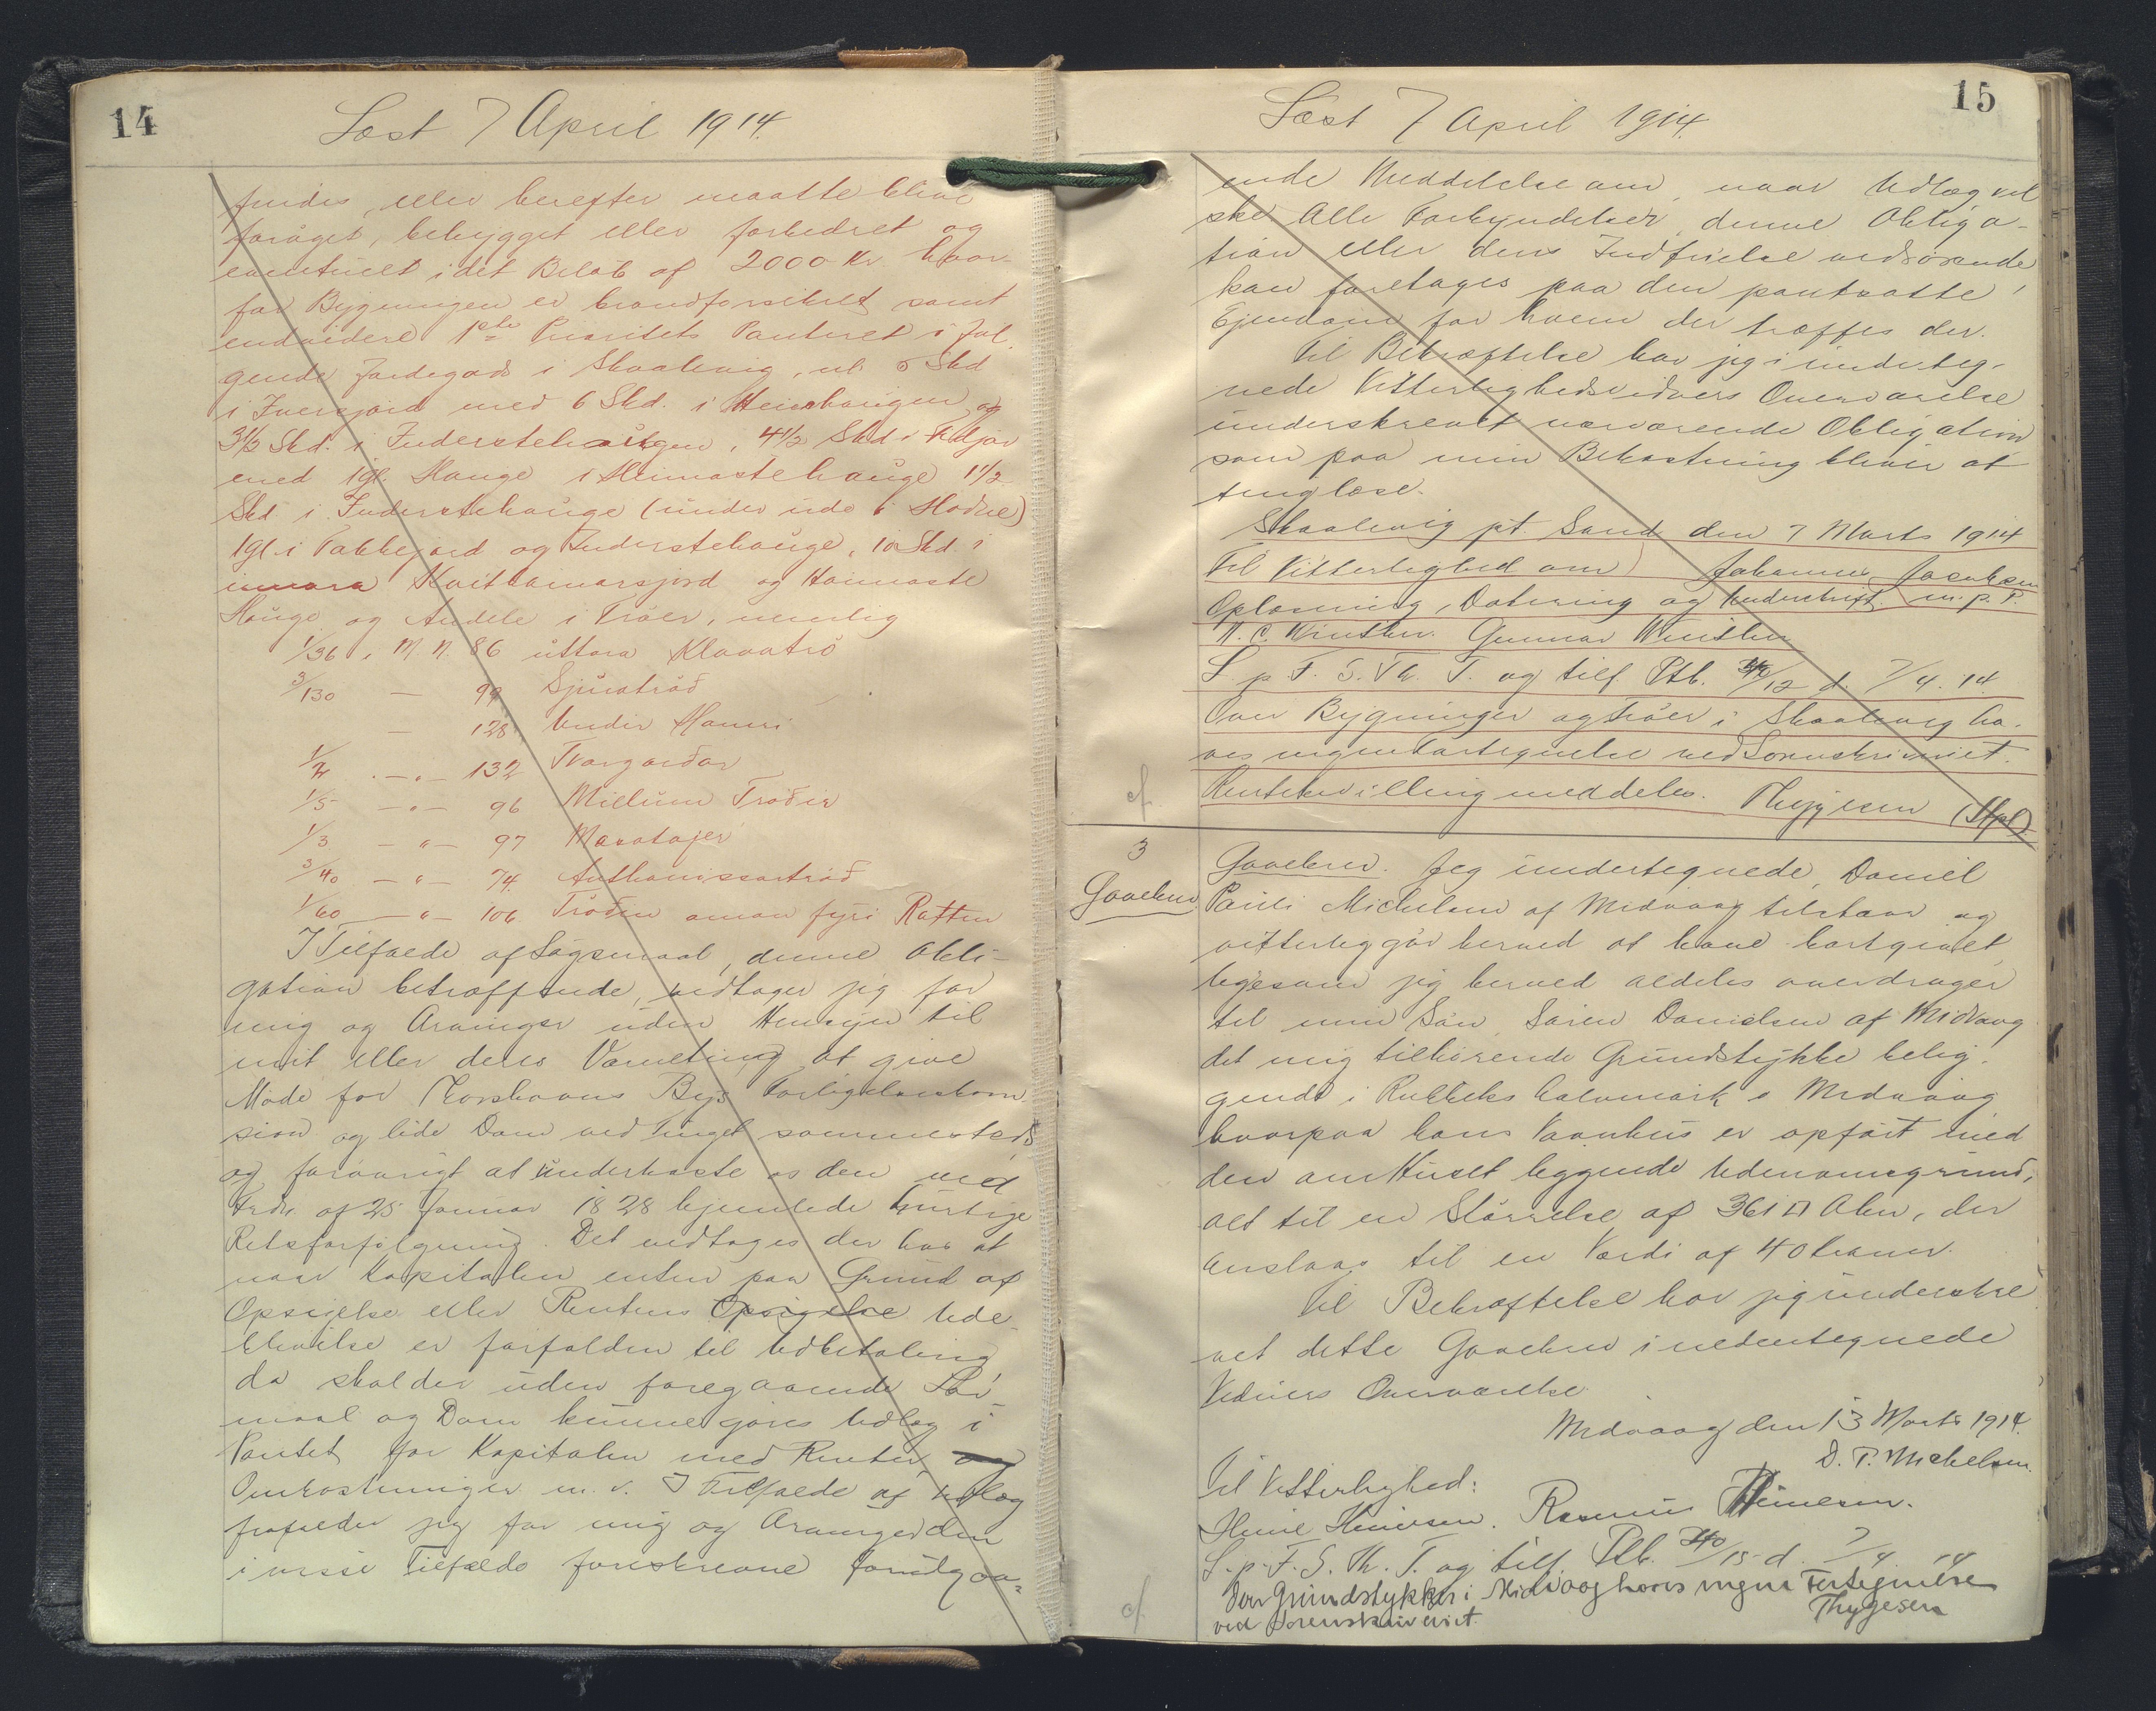 14
Læst 7 April 1914.
findes, eller herefter maatte blive
forøget, bebygget eller forbedret og
eventuelt i det Beløb af 2000 Kr. hvor-
for Bygningen er brandforsikret samt
endvidere 1ste Prioritets Panteret i føl-
gende Jordegods i Skaalevig, nl. 5 Skd
i Innergjord med 6 Skd. i Heimhaugen og
3½ Skd. i Inderstehaugen, 4½ Skd i
med 1gl. Hauge i Heimastehauge 1½
Skd i Inderstehauge (under udo i Hodne)
1gl. i Bakkejord og Inderstehauge, 10 Skd. i
Hvittamarsjord og Haimaste
Hauge og Andele i Trøer, nemlig
1/36 i M. N. 86 uttara Klavatrö
3/130 — 99 Sjúratröð
— 128 Undir Hamri
— " — 132 Tvørgarðar
1/5 — " — 96 Millum Traðir
1/3 — " — 97
3/40 — " — 74. Anthonissartröð
1/60 — " — 106 Tröðin oman fyri Rættin
I Tilfælde af Søgsmaal, denne Obli-
gation betræffende, vedtager jeg for
mig og Arvinger uden Hensyn til
mit eller deres Værneting at give
Møde for Thorshavns Bys Forligelseskom-
sion og lide Dom ved Tinget sammesteds
og forøvrigt at underkaste os den ved
Frdn. af 25 Januar 1828 hjemlede hurtige
Retsforfølgning. Det vedtages derhos at
naar Kapitalen enten paa Grund af
Opsigelse eller Rentens Opsigelse Ude-
blivelse er forfalden til Udbetaling
da skal der uden foregaaende Søg
maal og Dom kunne gøres Udlæg i
Pantet for Kapitalen med Renter og
Omkostninger m. v. I Tilfælde af Udlæg
frafalder jeg for mig og Arvinger den
i visse Tilfælde foreskrevne forudgaa-
15
Læst 7 April 1914.
ende Meddelelse om, naar Udlæg vil
ske. Alle Forkyndelser, denne Obliga-
tion eller dens Indfrielse vedrørende
kan foretages paa den pantsatte
Ejendom for hvem der træffes der.
Til Bekræftelse har jeg i underteg-
nede Vitterlighedsvidners Overværelse
underskrevet nærværende Obligation
som paa min Bekostning bliver at
tinglæse.
Skaalevig pt Sand den 7 Marts 1914
Til Vitterlighed om Johannes Jacobsen
Oplæsning, Datering og Underskrift. m. p. P.
N. C. Winther. Gunnar Winther
L. p. F. S. Th. T. og tilf. Ptb. 40/12 d. 7/4. 14.
Over Bygninger og Trøer i Skaalevig ha-
ves ingen Fortegnelse ved Sorenskriveriet.
cf. Rentekvittering meddeles. Thygesen (Stpl)
3
Gavebrev
Gavebrev. Jeg undertegnede, Daniel
Pauli Michelsen af Midvaag tilstaar og
vitterliggør herved at have bortgivet
ligesom jeg herved aldeles overdrager
til min Søn Søren Danielsen af Midvaag
det mig tilhørende Grundstykke belig-
gende i Rukkeks halvmark i Midvaag
hvorpaa hans Vaanhus er opført med
den om Huset liggende Udenomsgrund,
alt til en Størrelse af 361 □ Alen, der
anslaas til en Værdi af 40 kroner.
Til Bekræftelse har jeg underskre
vet dette Gavebrev i nedentegnede
Vidners Overværelse.
Midvaag den 13 Marts 1914.
D. P. Michelsen.
Til Vitterlighed:
Heine Heinesen. Rasmus Heinesen.
L. p. F. S. Th. T. og tilf. Ptb. 40/15 d. 7/4. 14
Over Grundstykker i Midvaag haves ingen Fortegnelse
cf. ved Sorenskriveriet. Thygesen